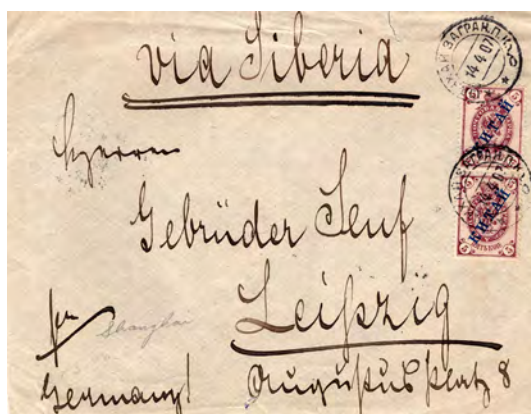 via Siberia
ЗАГРАН. П. К.
14 4 07
КИТАЙ
КИТАЙ
Herren
Gebrüder Senf
Leipzig
Shanghai
Germany! Augustusplatz 8